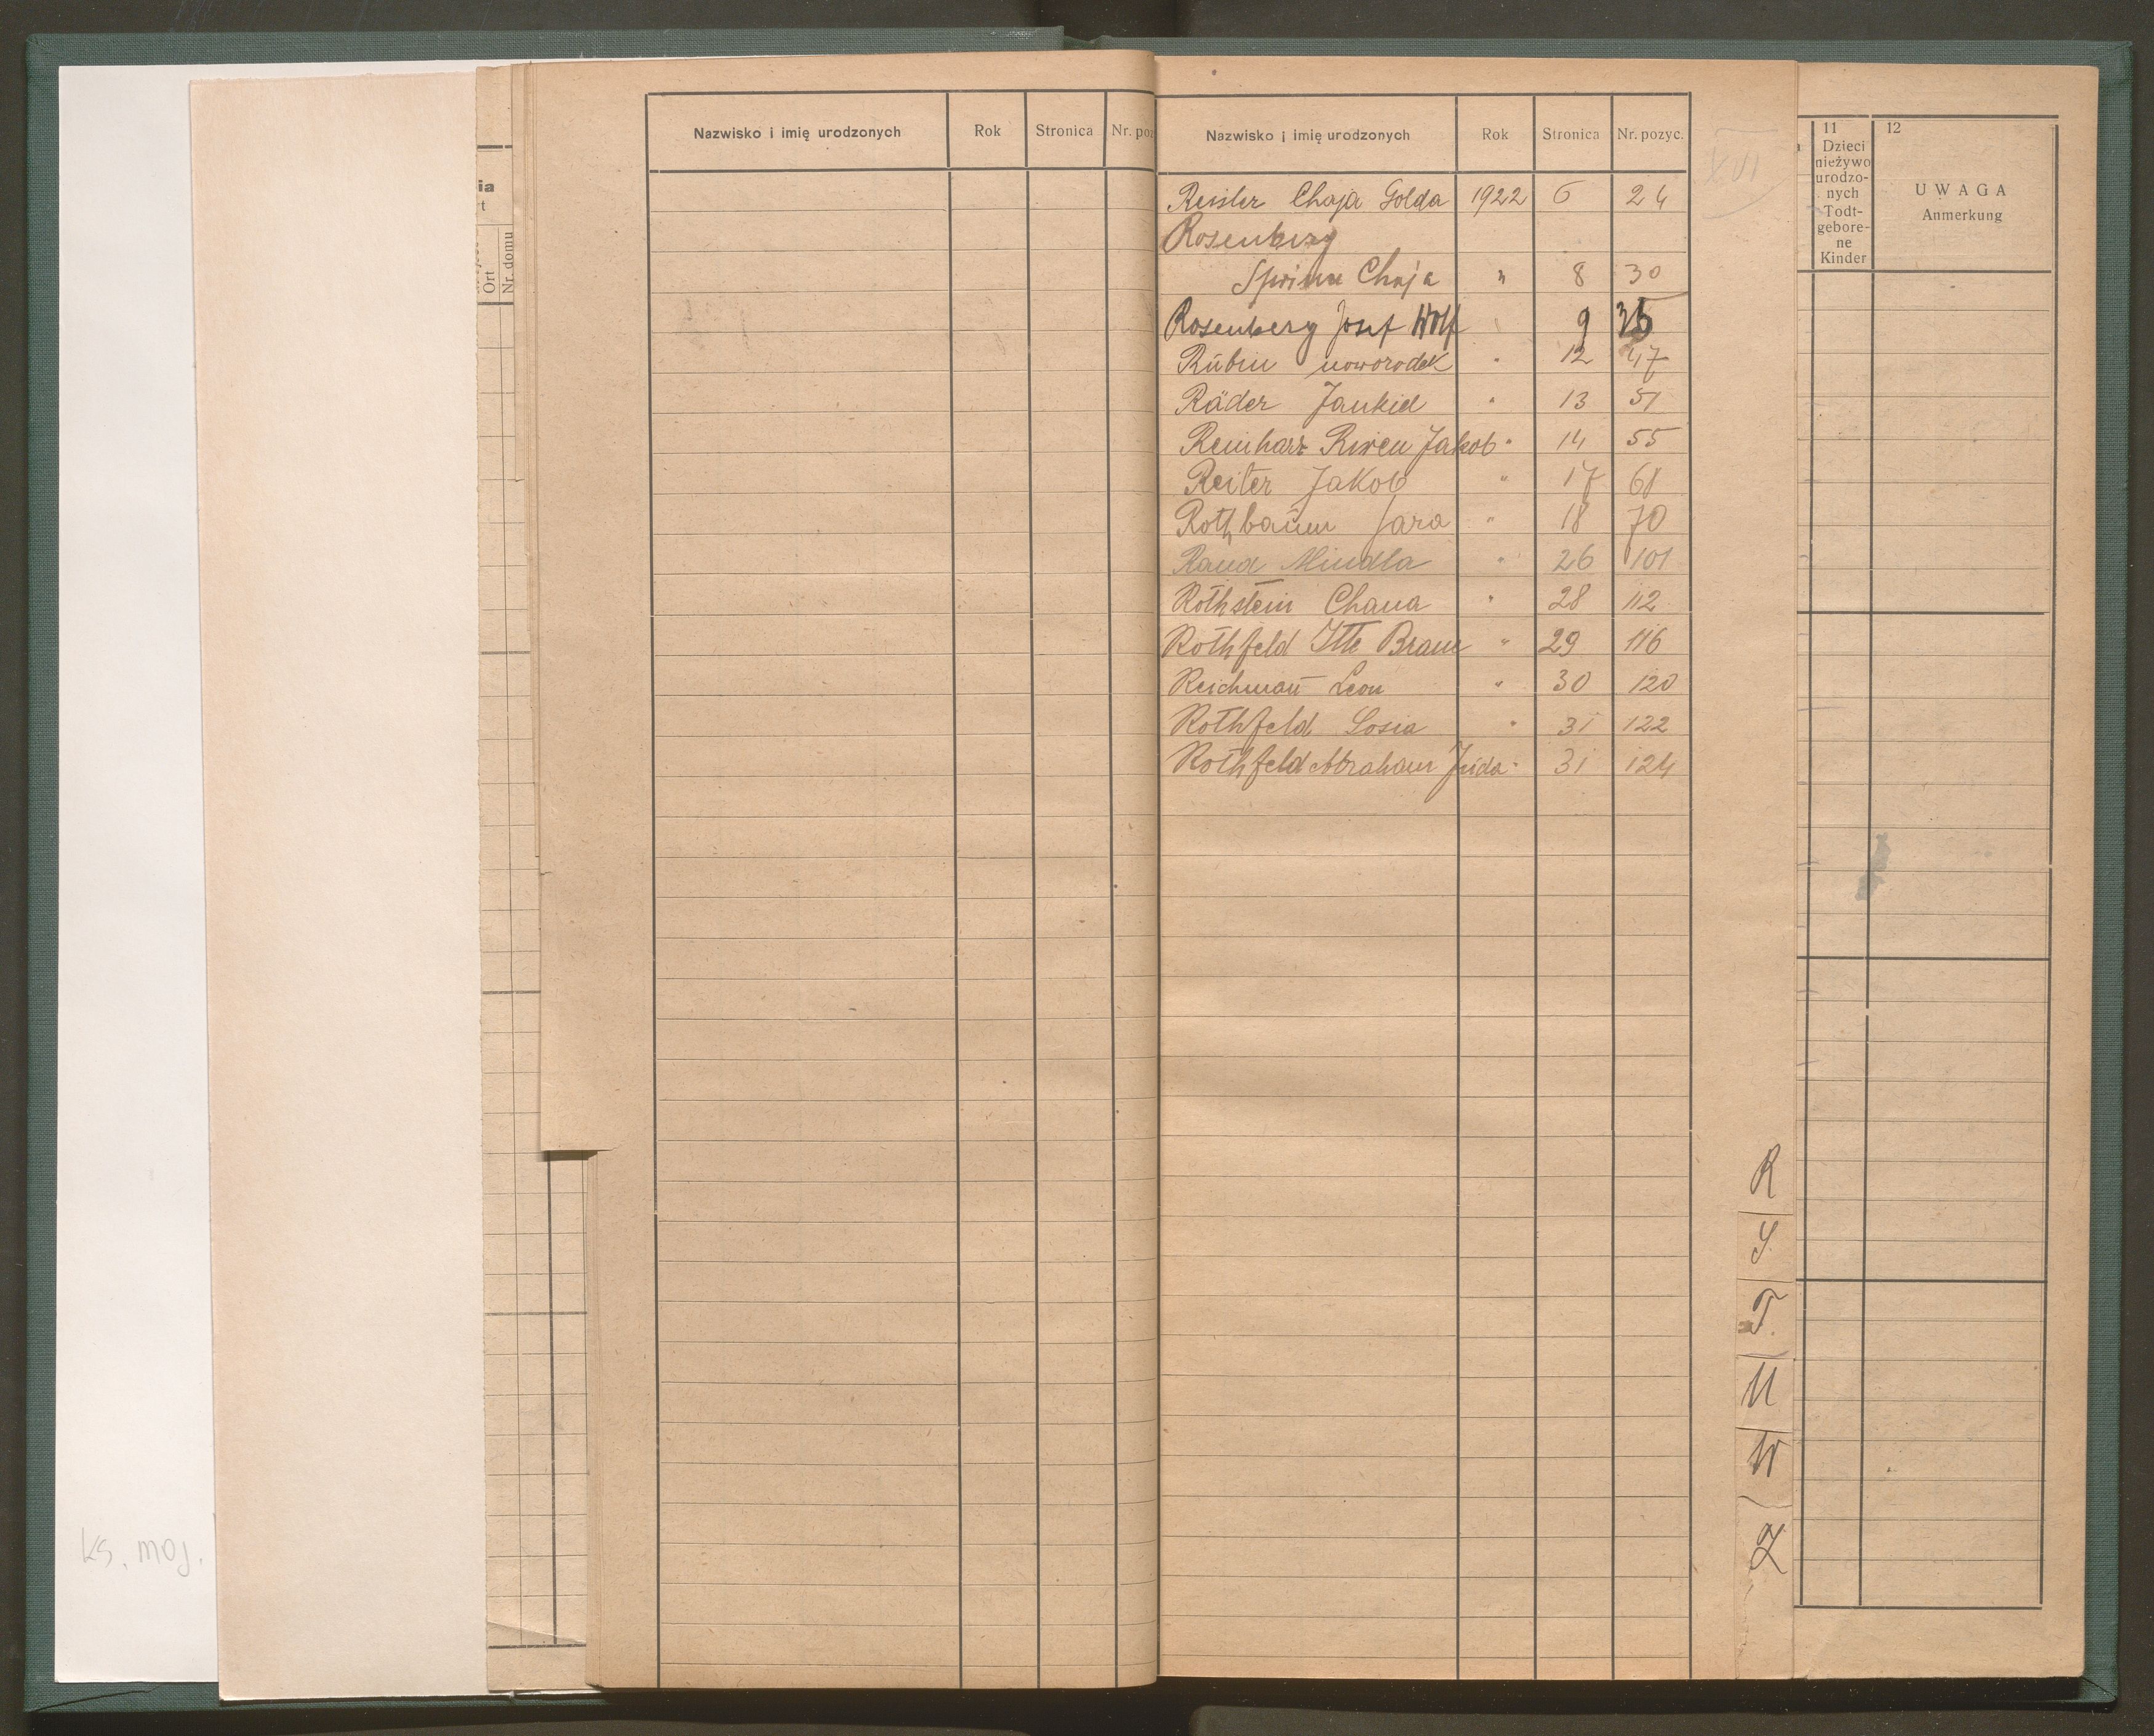 Nazwisko i imię urodzonych Rok Stronica Nr. poz
Nazwisko i imię urodzonych Rok Stronica Nr. pozyc.
XVI
Reisler Chaja Golda 1922 6 24
Rosenberg
Sprinze Chaja " 8 30
Rosenberg Josef Wolf 9 35
Rübin noworodek " 12 47
Räder Jankiel " 13 51
Reinharz Riwen Jakob " 14 55
Reiter Jakob " 17 68
Rothbaum Sara " 18 70
Rand Mindla " 26 101
Rothstein Chana " 28 112
Rothfeld Itte Brane " 29 116
Reichman Leon " 30 120
Rothfeld Sosia " 31 122
Rothfeld Abraham Juda " 31 124
R
S
T.
U
W
Z
ia
t
Ort
Nr. domu
11
Dzieci
nieżywo
urodzo-
nych
Todt-
gebore-
ne
Kinder
12
UWAGA
Anmerkung
ks. moj.